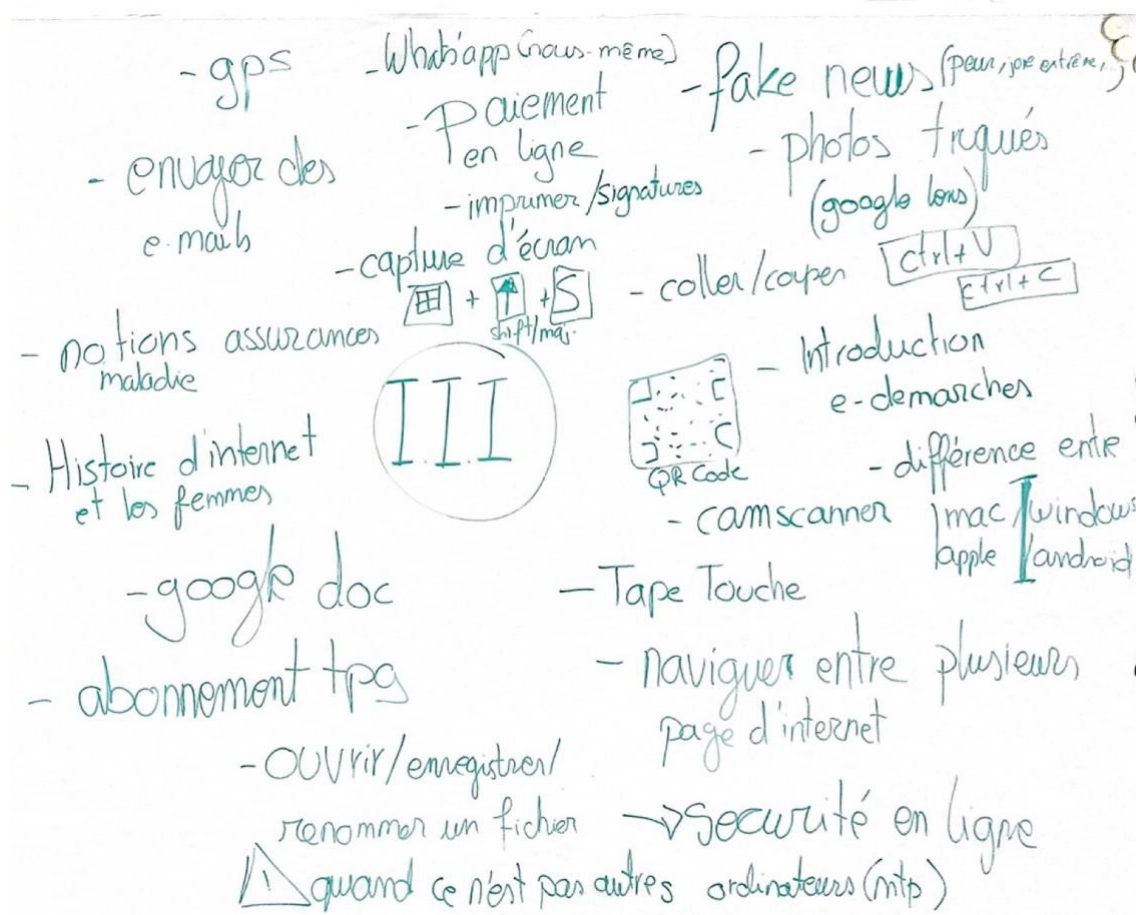 - gps
- What'app (nous-même)
- fake news (peur, joie extrême,
- Paiement
en ligne
- photos truqués
(google lens)
- envoyer des
e-mails
- imprimer/signatures
- capture d'écran
+ +S
shift/maj.
- coller/couper
ctrl+V
ctrl+C
- notions assurances
maladie
III
- Introduction
e-demarches
QR Code
- Histoire d'internet
et les femmes
- différence entre
mac/windows
apple/android
- camscanner
- google doc
- Tape Touche
- abonnement tpg
- naviguer entre plusieurs
page d'internet
- ouvrir/enregistrer/
renommer un fichier
→ Securité en ligne
! quand ce n'est pas autres ordinateurs (mtp)